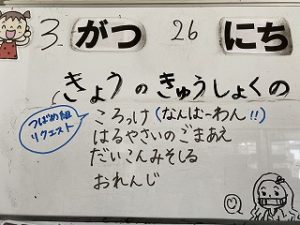 3 がつ 26 にち
きょうのきゅうしょくの
つばめ組
リクエスト
ころっけ(なんばーわん!!)
はるやさいのごまあえ
だいこんみそしる
おれんじ